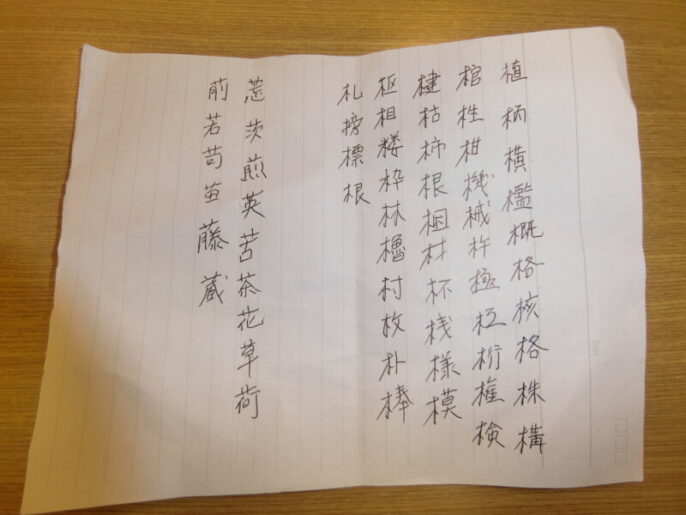 植柄横檻概格核格株構
棺性柑機械杵極枢桁権検
棲枯柿根梱材杯桟様模
枢相楼枠林櫓村枚朴棒
札榜標根
惹茨煎英苦茶花草荷
前若苟苗藤蔵